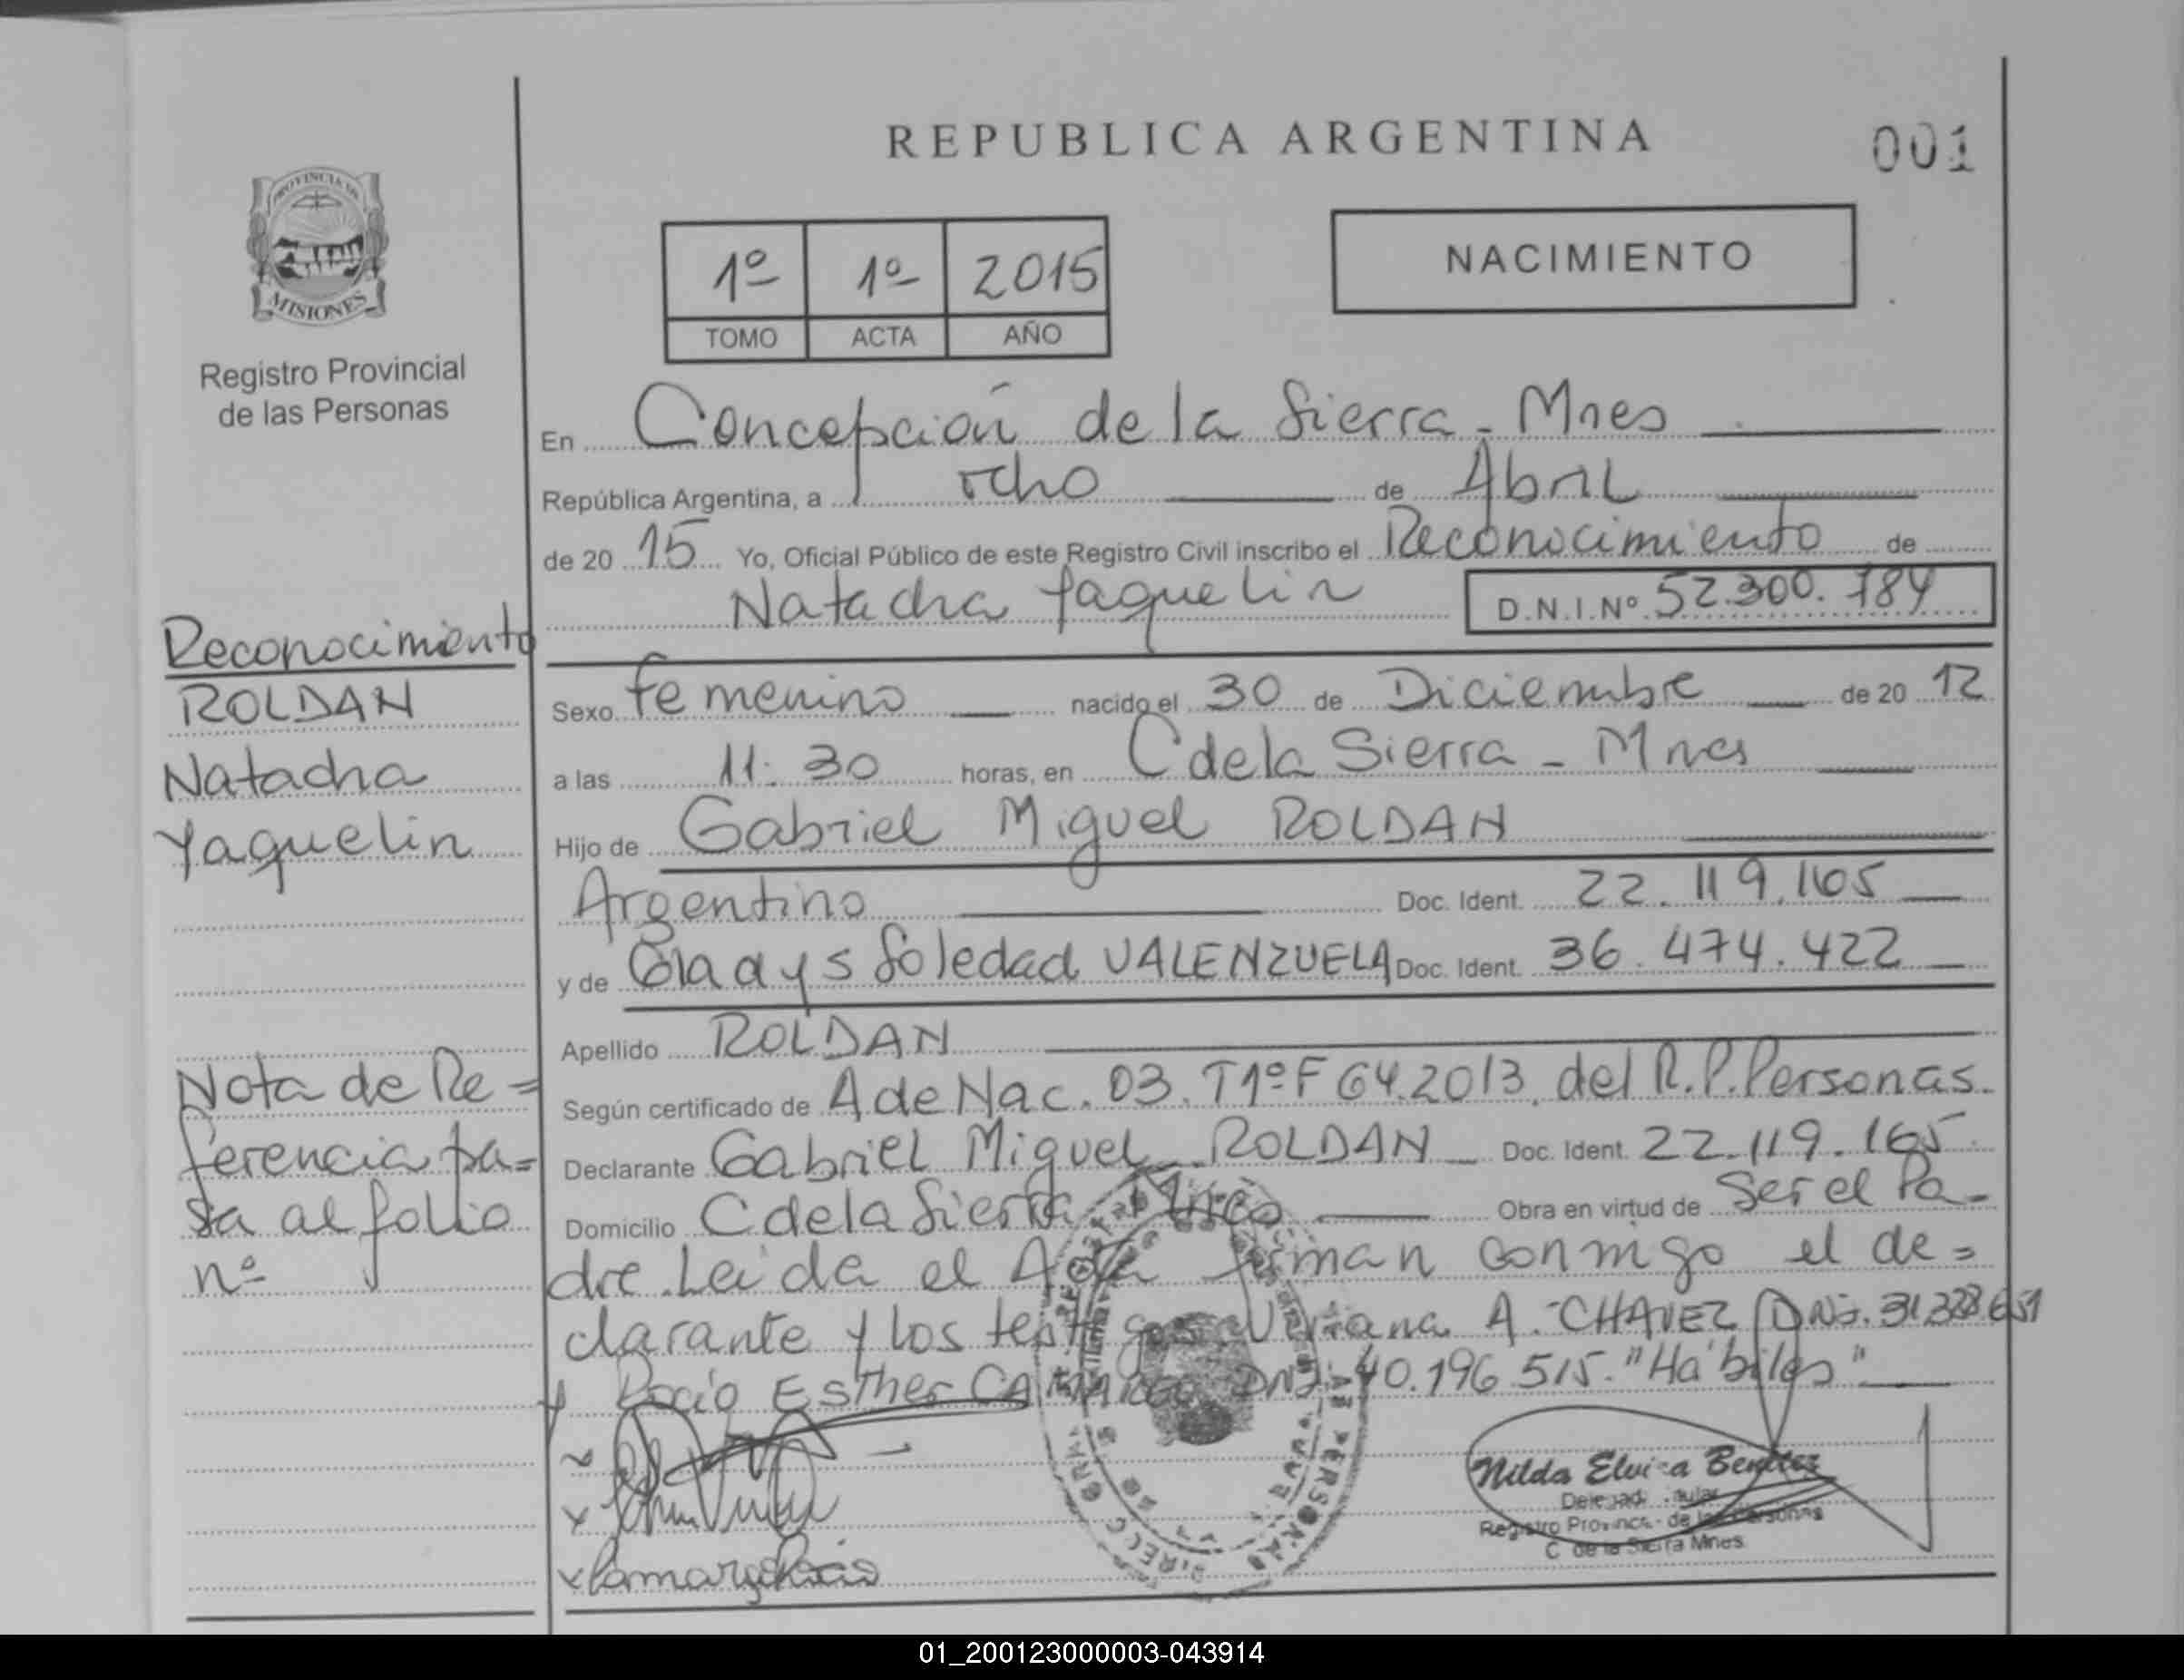 REPUBLICA ARGENTINA
001
PROVINCIA DE
MISIONES
Registro Provincial
de las Personas
1º 1º 2015
TOMO ACTA AÑO
NACIMIENTO
En Concepción de la Sierra - Mnes
República Argentina, a ocho de Abril
de 20 15 Yo, Oficial Público de este Registro Civil inscribo el Reconocimiento de
Natacha Yaquelin D.N.I.Nº 52.300.784
Reconocimiento
ROLDAN
Natacha
Yaquelin
Sexo femenino nacido el 30 de Diciembre de 20 12
a las 11:30 horas, en C de la Sierra - Mnes
Hijo de Gabriel Miguel ROLDAN
Argentino Doc. Ident. 22.119.165
y de Gladys Soledad VALENZUELA Doc. Ident. 36.474.422
Apellido ROLDAN
Nota de Re=
ferencia pa=
sa al folio
nº
Según certificado de A de Nac. 03. T1º F 64.2013, del R.P. Personas.
Declarante Gabriel Miguel ROLDAN Doc. Ident. 22.119.165
Domicilio C de la Sierra Mnes Obra en virtud de Ser el Pa-
dre. Leida el Acta firman conmigo el de=
clarante y los testigos A. CHAVEZ DNI. 31.328.651
y Rocio Esther CAMARGO DNI 40.196.515. "Hábiles"
Nilda Elvira Benitez
Registro Provinc. de las Personas
C de la Sierra Mnes
01_200123000003-043914